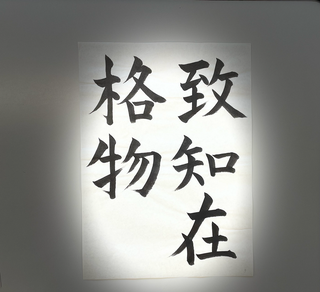 致知在
格物